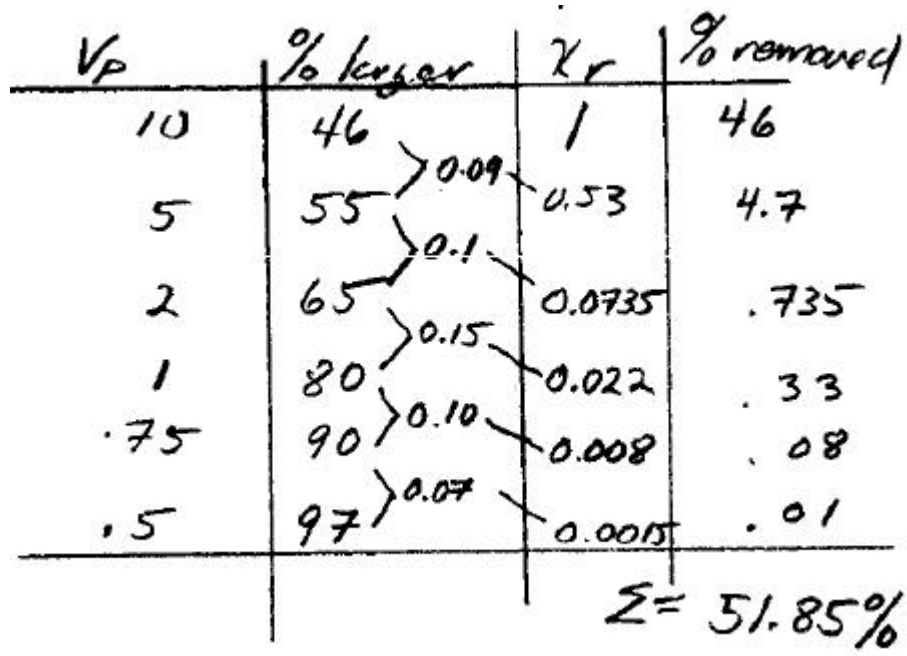 Vp % larger Xr % removed
10 46 1 46
0.09
5 55 0.53 4.7
0.1
2 65 0.0735 .735
0.15
1 80 0.022 .33
0.10
.75 90 0.008 .08
0.07
.5 97 0.0015 .01
Σ= 51.85%